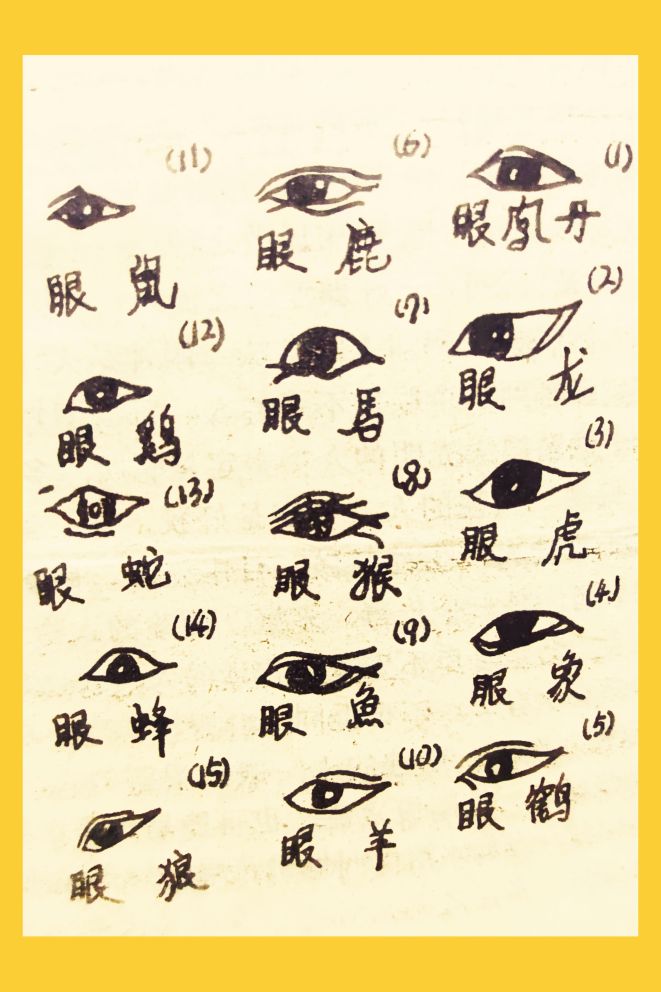 (1)
丹鳳眼
(2)
龙眼
(3)
虎眼
(4)
象眼
(5)
鶴眼
(6)
鹿眼
(7)
馬眼
(8)
猴眼
(9)
魚眼
(10)
羊眼
(11)
鼠眼
(12)
鶏眼
(13)
蛇眼
(14)
蜂眼
(15)
狼眼